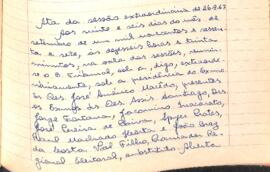 Ata da sessão extraordinária de 26.9.67
Aos vinte e seis dias do mês de
setembro de um mil novecentos e sessen-
ta e sete, às dezesseis horas e trinta
minutos, na sala das sessões, reuniu-
se o E. Tribunal, sob a, digo, extraordi-
nàriamente, sob a presidência do Exmo
Sr. Des. José Américo Macêdo, presentes
os Exmos Srs. Des. Assis Santiago, Drs.
Jorge Fontana, Jacomino Inacarato,
José Pereira de Paiva, Ayres
Raul Machado Horta e João Braz
da Costa Val Filho, Procurador Re-
gional Eleitoral, substituto. Aberta